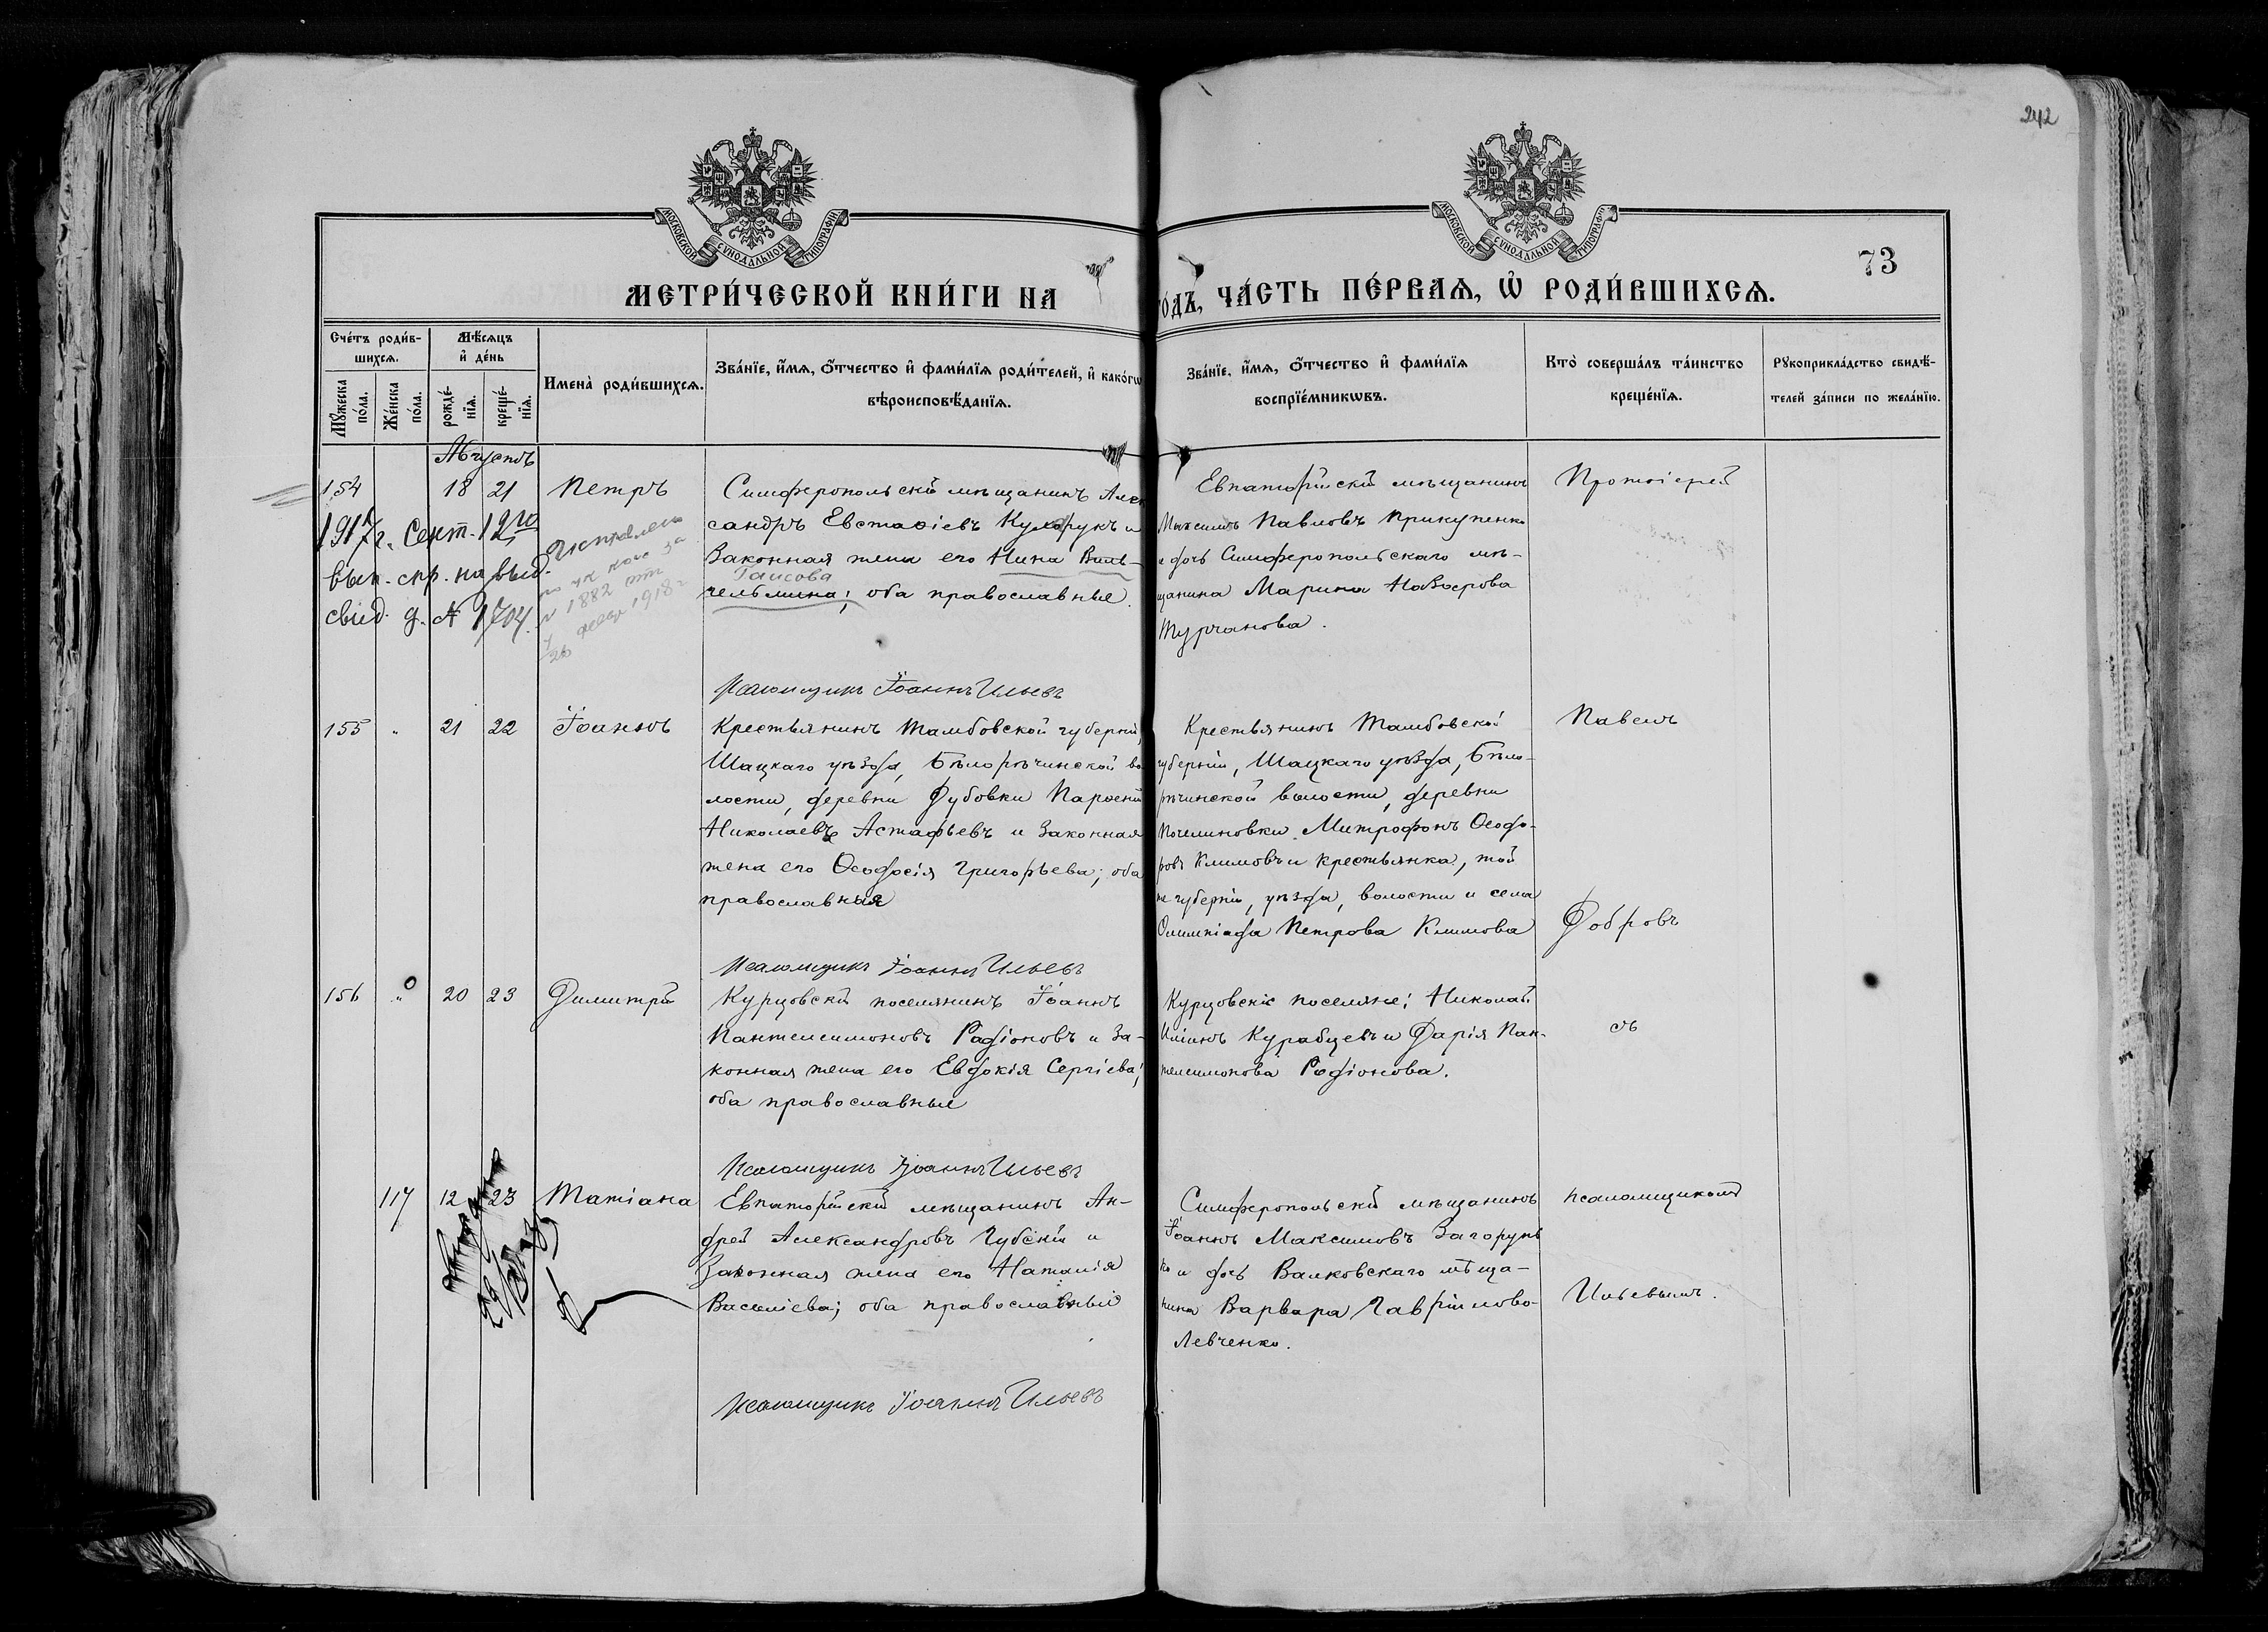 242
МОСКОВСКОЙ СУНОДАЛЬНОЙ ТИПОГРАФІИ
МОСКОВСКОЙ СУНОДАЛЬНОЙ ТИПОГРАФІИ
73
МЕТРИ́ЧЕСКОЙ КНИ́ГИ НА
ГО́ДЪ, ЧА́СТЬ ПЕ́РВАѦ, Ѡ҆ РОДИ́ВШИХСѦ.
Сче́тъ роди́в-
шихсѧ.
Мꙋ́жеска по́ла.
Же́нска по́ла.
Мѣ́сѧцъ
и҆ де́нь
рожде́-нїѧ.
креще́-нїѧ.
Имена̀ роди́вшихсѧ.
Зва́нїе, и҆́мѧ, ѻ҆́тчество и҆ фами́лїѧ роди́телей, и҆ како́гѡ
вѣроисповѣ́данїѧ.
Зва́нїе, и҆́мѧ, ѻ҆́тчество и҆ фами́лїѧ
воспрїе́мникѡвъ.
Кто̀ соверша́лъ та́инство
креще́нїѧ.
Рꙋкоприкла́дство свидѣ́-
телей за́писи по жела́нїю.
Августъ
154 18 21 Петръ
1917 г. Сент. 12го
вып. спр. на выд.
свид. д. № 1704.
Симферопольскій мѣщанинъ Алек
сандръ Евстаѳіевъ и
законная жена его Нина Виль-
Гансова
гельмина; оба православные.
Евпаторійскій мѣщанинъ
Максимъ Павловъ Прикупенко
и дочь Симферопольскаго мѣ-
щанина Марина
Турчанова.
Протоіерей
Псаломщикъ Іоаннъ Ильевъ
155 " 21 22 Іоаннъ
Крестьянинъ Тамбовской губерніи,
Шацкаго уѣзда, Бѣлорѣчинской во-
лости, деревни Дубовки Парѳеній
Николаевъ Астафьевъ и законная
жена его Ѳеодосія Григорьева; оба
православныя
Крестьянинъ Тамбовской
губерніи, Шацкаго уѣзда, Бѣло-
рѣчинской волости, деревни
Митрофанъ Ѳеодо-
ровъ Климовъ и крестьянка, той
же губерніи, уѣзда, волости и села
Олимпіада Петрова Климова
Павелъ
Добровъ
Псаломщикъ Іоаннъ Ильевъ
156 " 20 23 Димитрій
Курцовскій поселянинъ Іоаннъ
Пантелеимоновъ Радіоновъ и за-
конная жена его Евдокія Сергіева;
оба православные
Курцовскіе поселяне: Николай
Иліинъ Курабцевъ и Дарія Пан-
телеимонова Радіонова.
съ
Псаломщикъ Іоаннъ Ильевъ
117 12 23 Татіана
Евпаторійскій мѣщанинъ Ан-
дрей Александровъ Губскій и
законная жена его Наталія
Василіева; оба православный
Симферопольскій мѣщанинъ
Іоаннъ Максимовъ Загорунь
ко и дочь Валковскаго мѣща-
нина Варвара Гавріилова
Левченко.
псаломщикомъ
Ильевымъ.
Псаломщикъ Іоаннъ Ильевъ